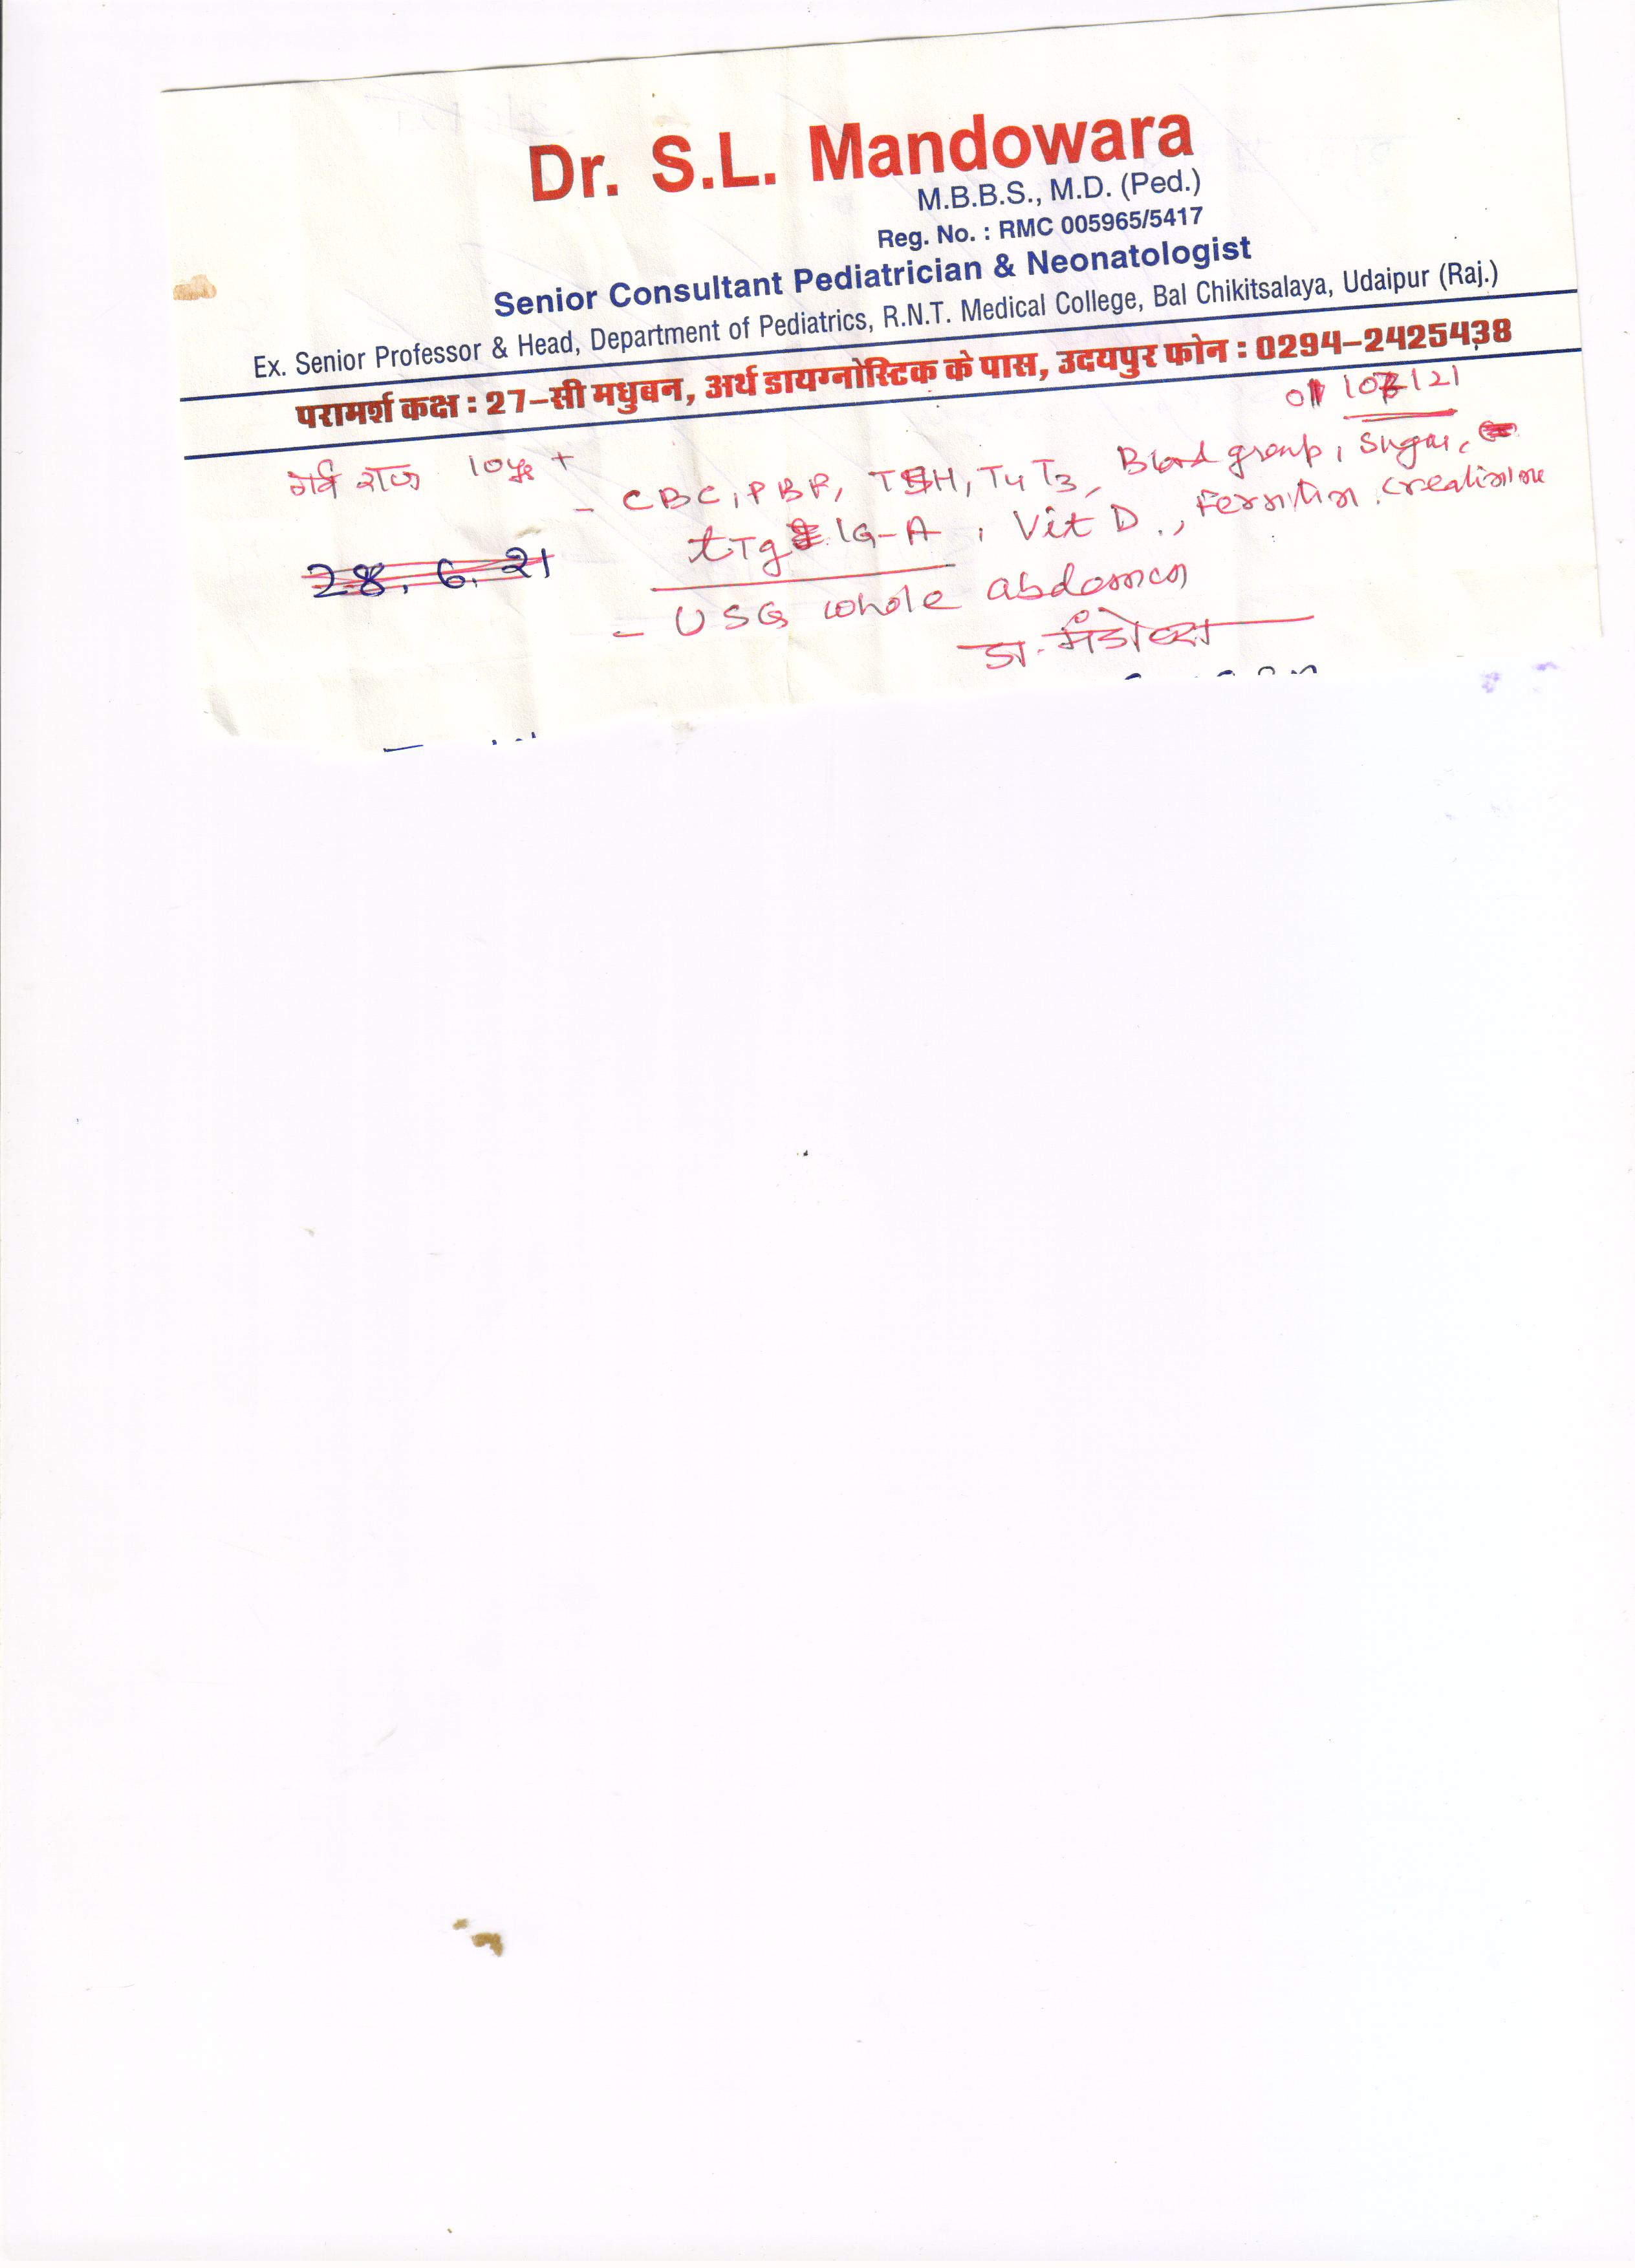 Dr. S.L. Mandowara
M.B.B.S., M.D. (Ped.)
Reg. No. : RMC 005965/5417
Senior Consultant Pediatrician & Neonatologist
Ex. Senior Professor & Head, Department of Pediatrics, R.N.T. Medical College, Bal Chikitsalaya, Udaipur (Raj.)
परामर्श कक्ष : 27-सी मधुबन, अर्थ डायग्नोस्टिक के पास, उदयपुर फोन : 0294-2425438
राज 10yr +
- CBC, PBF, TSH, T4 T3, Blood group, Sugar,
tTg IG-A, Vit D., Ferritin, Creatinine
28.6.21
- USG whole abdomen
डा. मंडोवरा